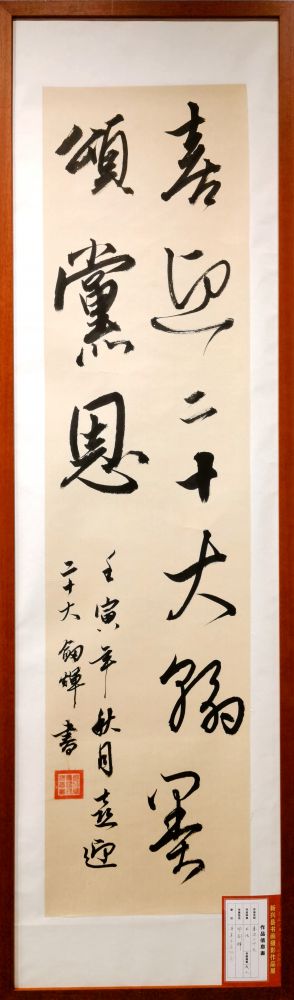 喜迎二十大翰墨
頌黨恩
壬寅年秋月喜迎
二十大劒輝書
新兴县书画摄影作品展
作品信息表